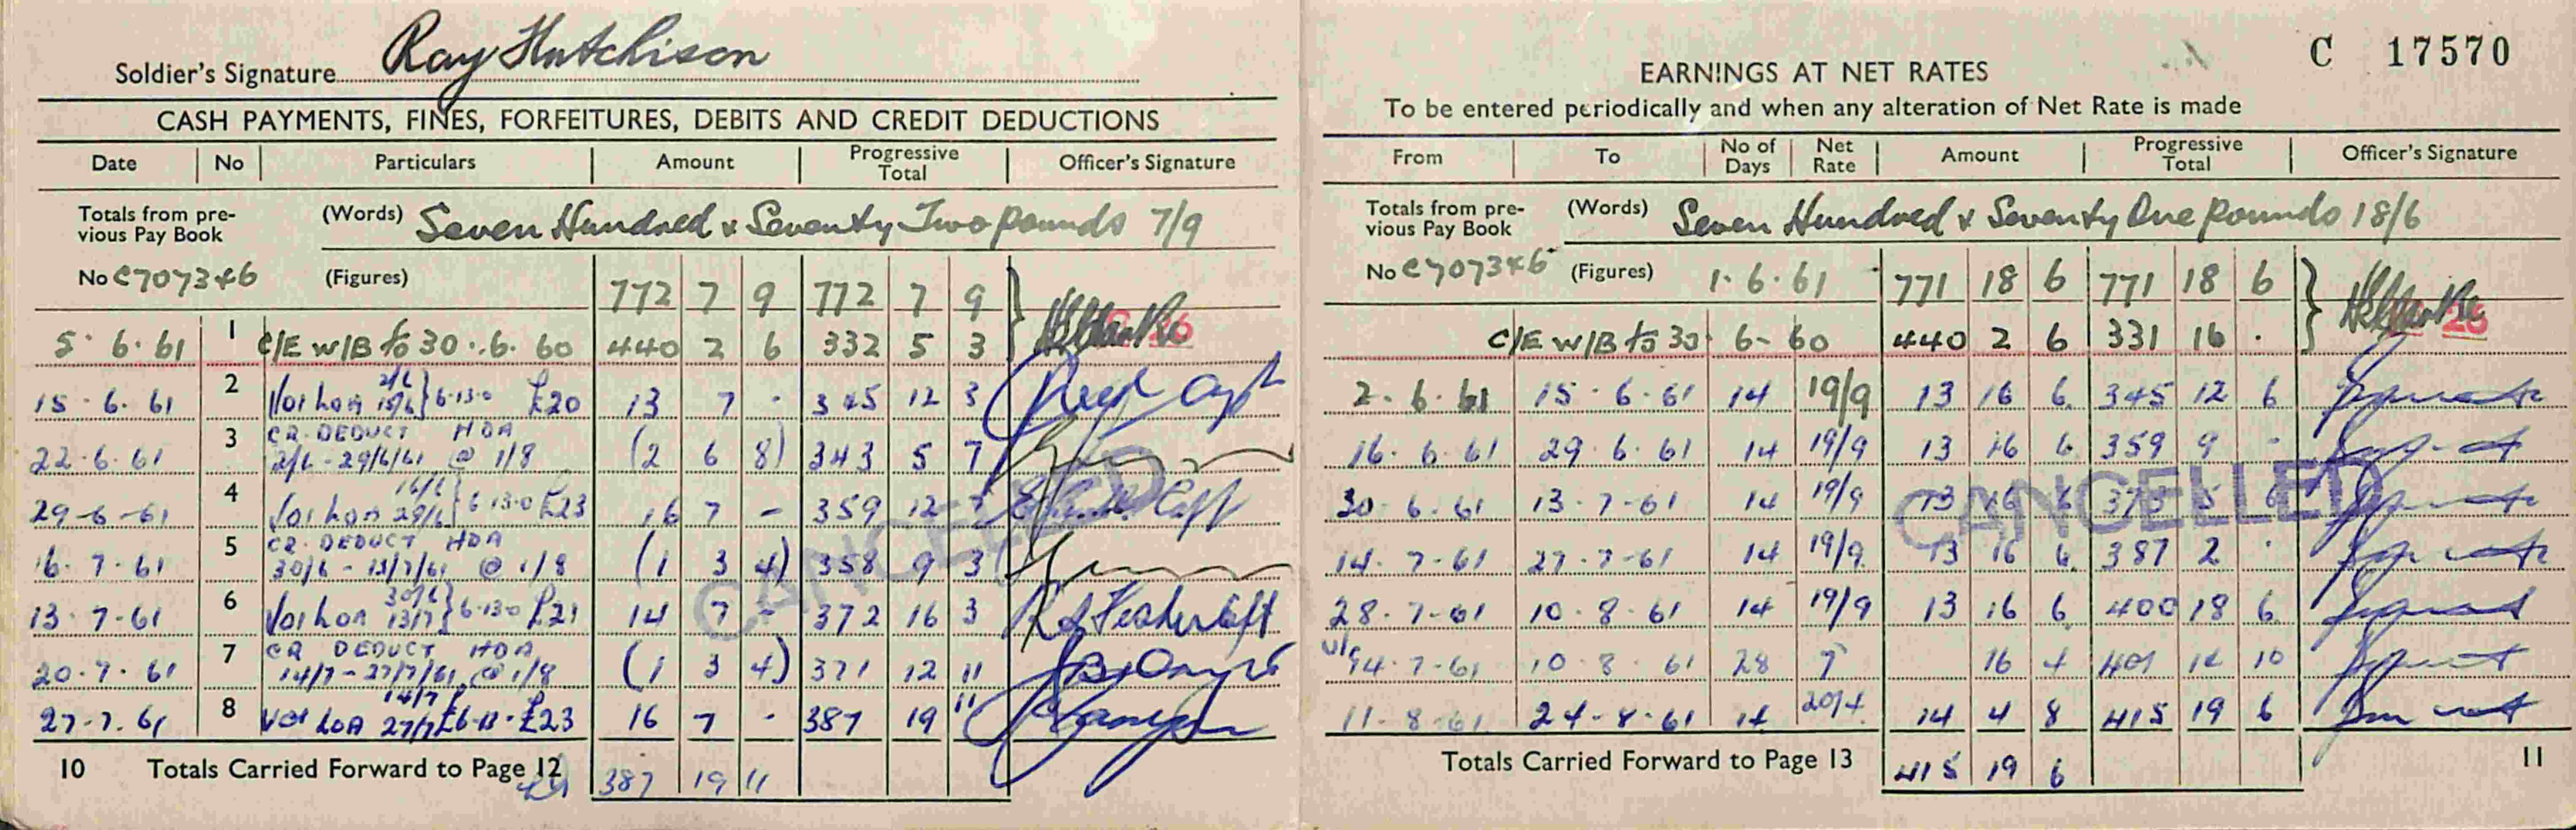 Soldier's Signature Ray Hutchison
CASH PAYMENTS, FINES, FORFEITURES, DEBITS AND CREDIT DEDUCTIONS
Date No Particulars Amount Progressive Total Officer's Signature
Totals from previous Pay Book (Words) Seven Hundred & Seventy Two pounds 7/9
No C707346 (Figures) 772 7 9 772 7 9
5.6.61 1 C/E W/B to 30.6.60 440 2 6 332 5 3
15.6.61 2 2/6 15/6 } 6-13-0 £20 13 7 - 345 12 3
22.6.61 3 CR DEDUCT HDA 2/6 - 29/6/61 @ 1/8 (2 6 8) 343 5 7
29-6-61 4 16/6 29/6 } 6-13-0 £23 16 7 - 359 12 7
6.7.61 5 CR DEDUCT HDA 30/6 - 13/7/61 @ 1/8 (1 3 4) 358 9 3
13.7-61 6 30/6 13/7 } 6-13-0 £21 14 7 - 372 16 3
20.7.61 7 CR DEDUCT HDA 14/7 - 27/7/61 @ 1/8 (1 3 4) 371 12 11
27-7.61 8 14/7 27/7 £6-13- £23 16 7 - 387 19 11
CANCELLED
10 Totals Carried Forward to Page 12 387 19 11
C 17570
EARNINGS AT NET RATES
To be entered periodically and when any alteration of Net Rate is made
From To No of Days Net Rate Amount Progressive Total Officer's Signature
Totals from previous Pay Book (Words) Seven Hundred & Seventy One pounds 18/6
No C707346 (Figures) 1.6.61 771 18 6 771 18 6
C/E W/B to 30.6-60 440 2 6 331 16 .
2.6.61 15.6.61 14 19/9 13 16 6 345 12 6
16.6.61 29.6.61 14 19/9 13 16 6 359 9 -
30.6.61 13.7-61 14 19/9 13 16 6 373 5 6
14.7-61 27.7-61 14 19/9 13 16 6 387 2 .
28.7-61 10.8.61 14 19/9 13 16 6 400 18 6
14.7-61 10.8.61 28 7 16 4 401 14 10
11-8-61 24-8-61 14 20/4 14 4 8 415 19 6
CANCELLED
Totals Carried Forward to Page 13 415 19 6
11